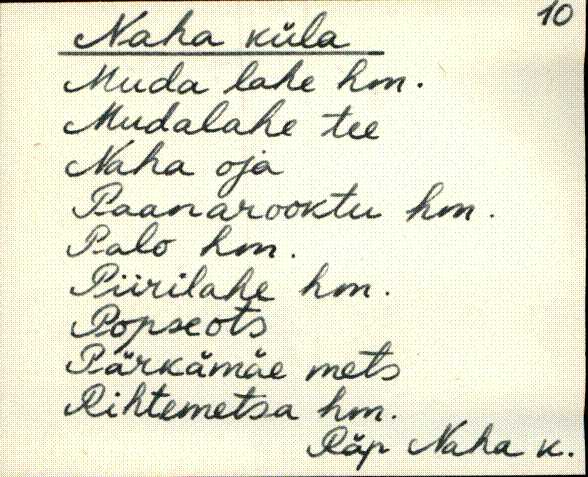 10
Naha küla
Muda lahe hm.
Mudalahe tee
Naha oja
Paanarooktu hm.
Palo hm.
Piirilahe hm.
Popseots
Pärkämäe mets
Rihtemetsa hm.
Räp Naha k.